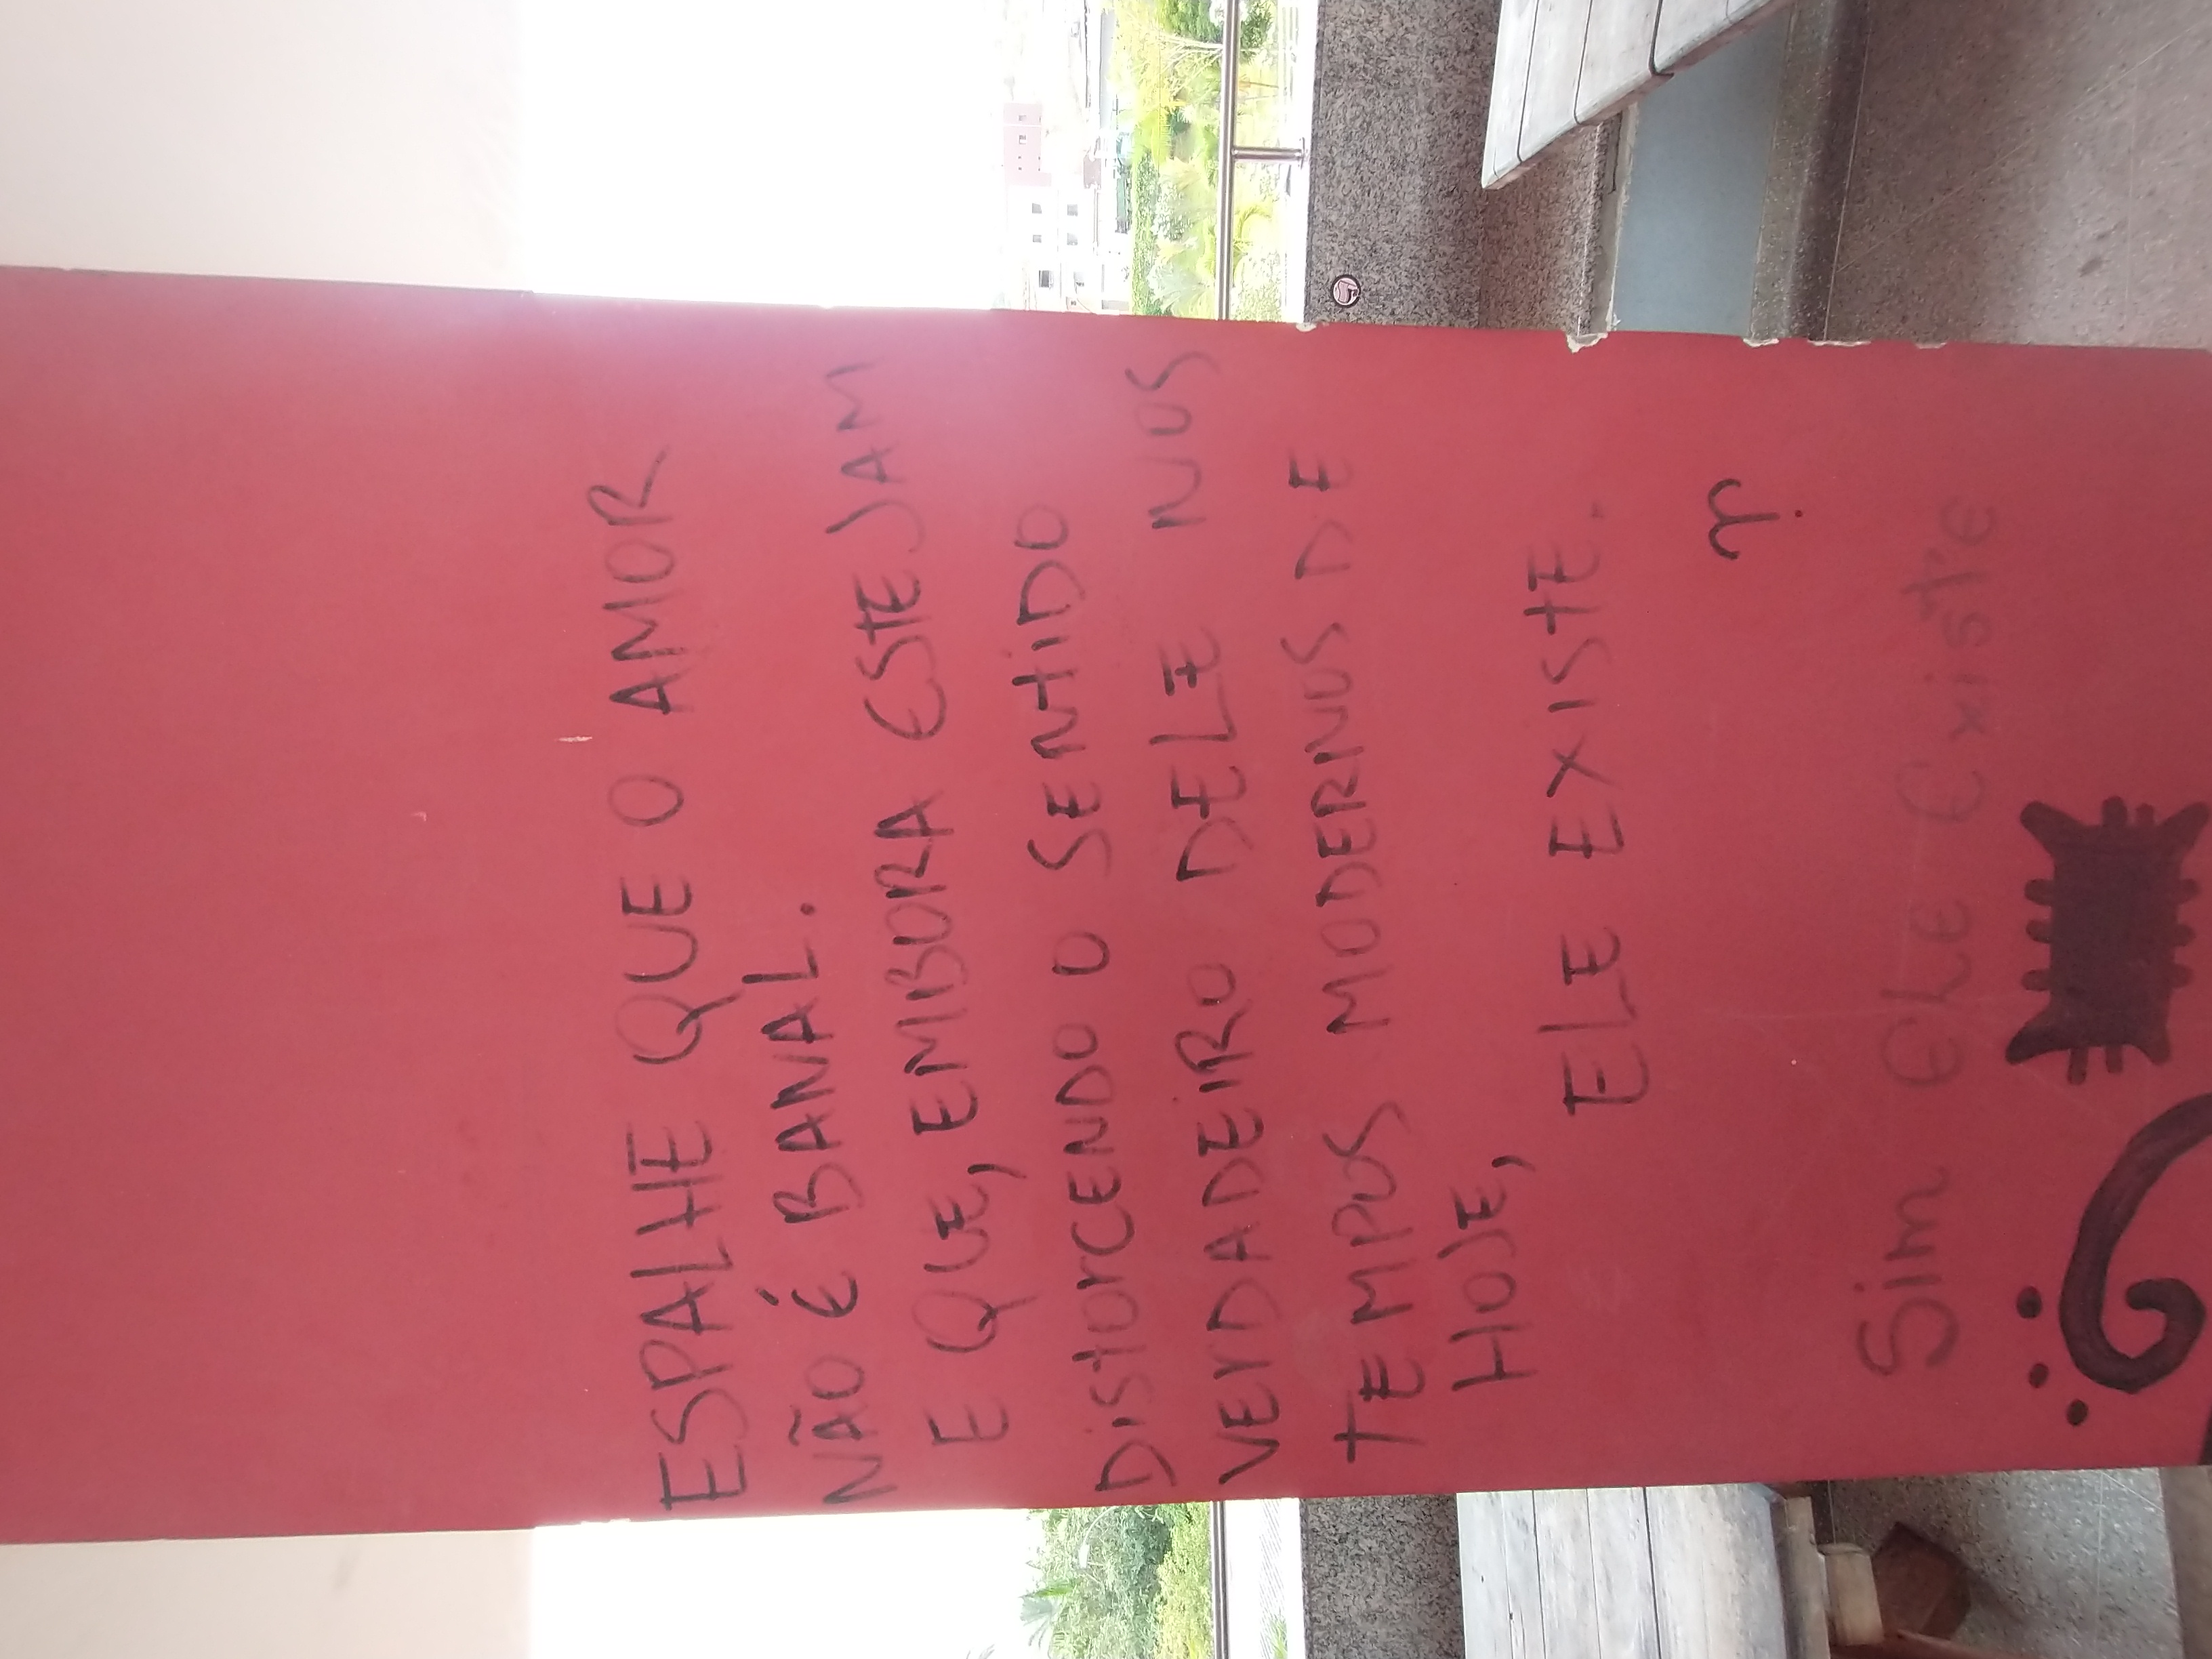 ESPALHE QUE O AMOR
NÃO É BANAL.
E QUE, EMBORA ESTEJAM
DistorCENDO O SENtiDO
VErDADEiRO DELE NOS
tEMPOS MODERNOS DE
HOJE,
ELE EXIStE.
♈
Sim ELE Existe